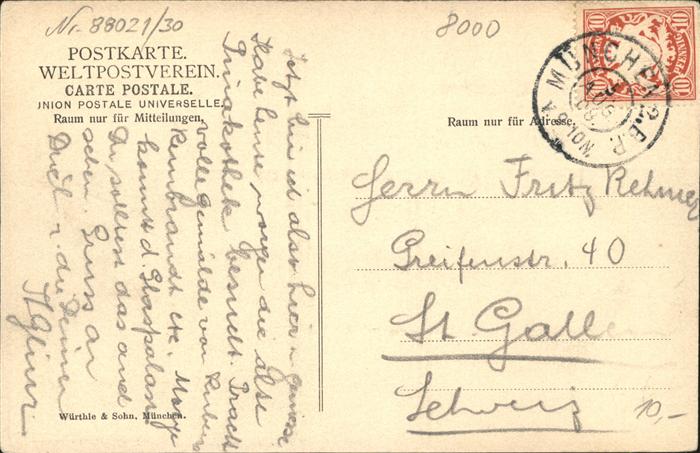 Nr. 88021/30
8000
POSTKARTE.
WELTPOSTVEREIN.
CARTE POSTALE.
UNION POSTALE UNIVERSELLE.
Raum nur für Mitteilungen.
Raum nur für Adresse.
10 PFENNIG 10
MÜNCHEN 2. B.P.
Jetzt bin ich also hier u. geniesse
Habe heute morgen die alte
Pinakothek besucht. Pracht
volle Gemälde von Rubens
Rembrandt etc. Morgen
kommt d. Glaspalast
Du solltest das auch
sehen. Gruss an
Dich u. die Deinen
Herrn Fritz Rehmer
Greifenstr. 40
St Gallen
Schweiz
10,-
Würthle & Sohn, München.